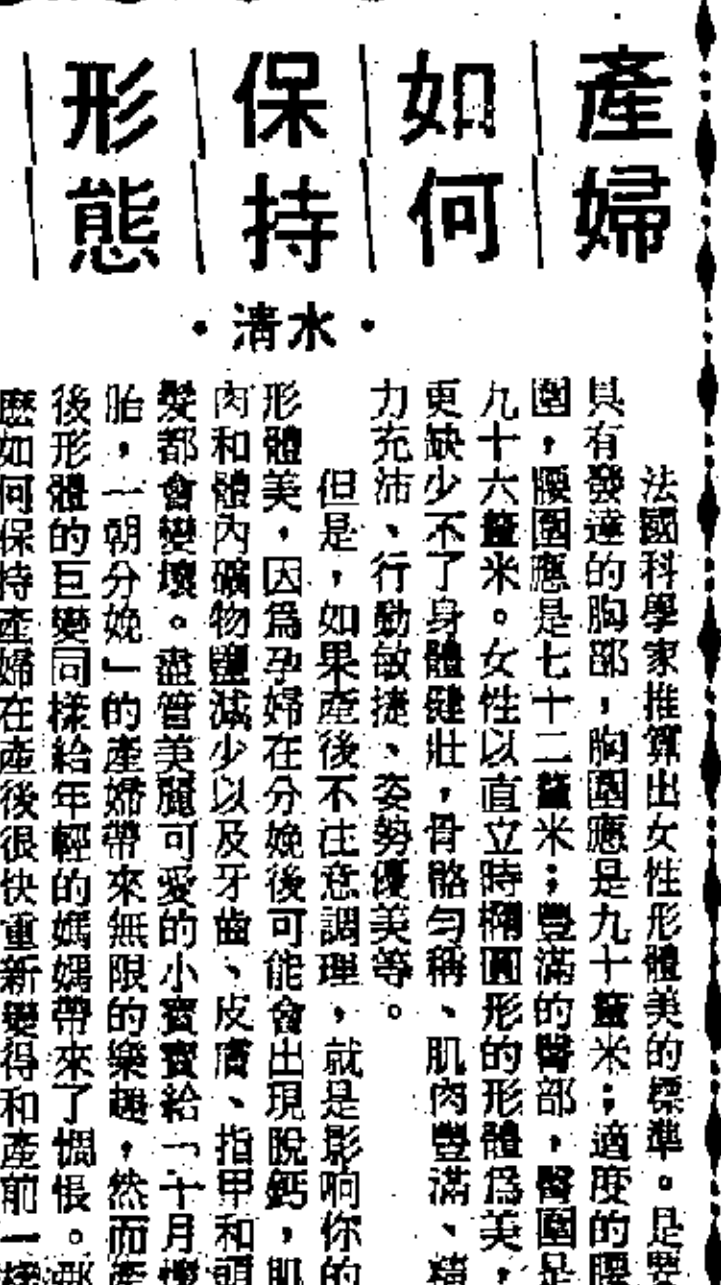 產婦
如何
保持
形態
•清水•
法國科學家推算出女性形體美的標準。是要
具有發達的胸部,胸圍應是九十釐米;適度的腰
圍,腰圍應是七十二釐米;豐滿的臀部,臀圍是
九十六釐米。女性以直立時橢圓形的形體爲美,
更缺少不了身體健壯,骨骼勻稱、肌肉豐滿、精
力充沛、行動敏捷、姿勢優美等。
但是,如果產後不注意調理,就是影响你的
形體美,因爲孕婦在分娩後可能會出現脫鈣,肌
肉和體內礦物鹽減少以及牙齒、皮膚、指甲和頭
髮都會變壞。盡管美麗可愛的小寶寶給「十月懷
胎,一朝分娩」的產婦帶來無限的樂趣,然而產
後形體的巨變同樣給年輕的媽媽帶來了惆悵。那
麽如何保持產婦在產後很快重新變得和產前一樣